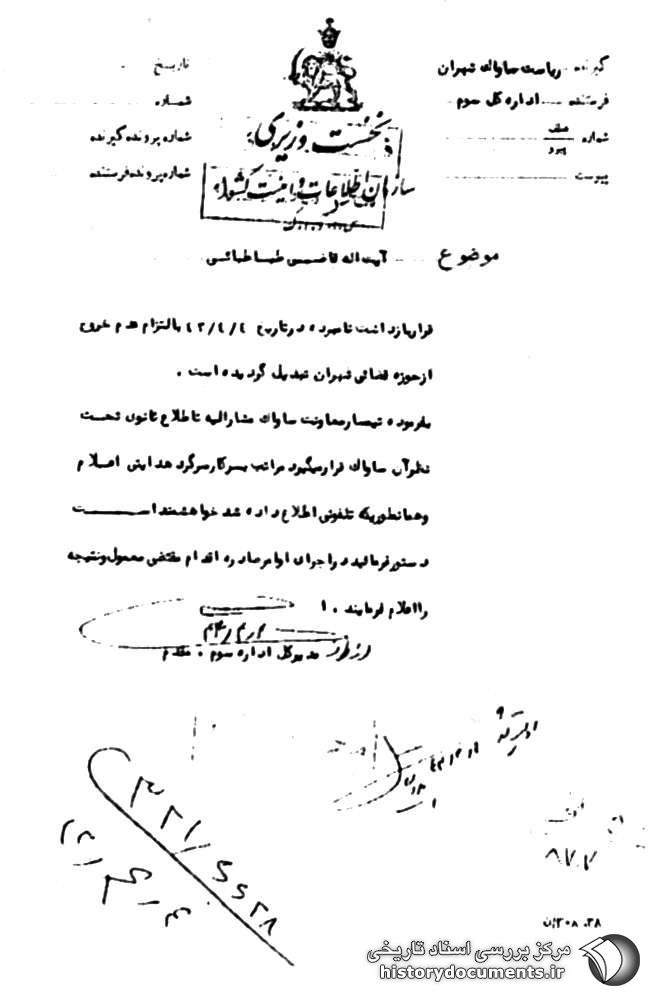 گیرنده ریاست ساواك تهران
فرستنده اداره کل سوم
شماره
پیوست
تاریخ
شماره
شماره پرونده گیرنده
شماره پرونده فرستنده
نخست وزیری
سازمان اطلاعات و امنیت کشور
موضوع آیت اله قاضی طباطبائی
قرار بازداشت نامبرده در تاریخ ٤٣/٤/٤ بالتزام عدم خروج
از حوزه قضائی تهران تبدیل گردیده است .
بفرموده تیمسار معاونت ساواك مشارالیه تا طلاع ثانوی تحت
نظر آن ساواك قرار میگیرد مراتب بسرکار سرگرد هدایتی اعلام
وهمانطوریکه تلفونی اطلاع داده شد خواهشمند است
دستور فرمائید در اجرای اوامر صادره اقدام مقتضی معمول و نتیجه
را اعلام فرمایند . ا
مدیرکل اداره سوم . مقدم
از طرف
مرکز بررسی اسناد تاریخی
historydocuments.ir